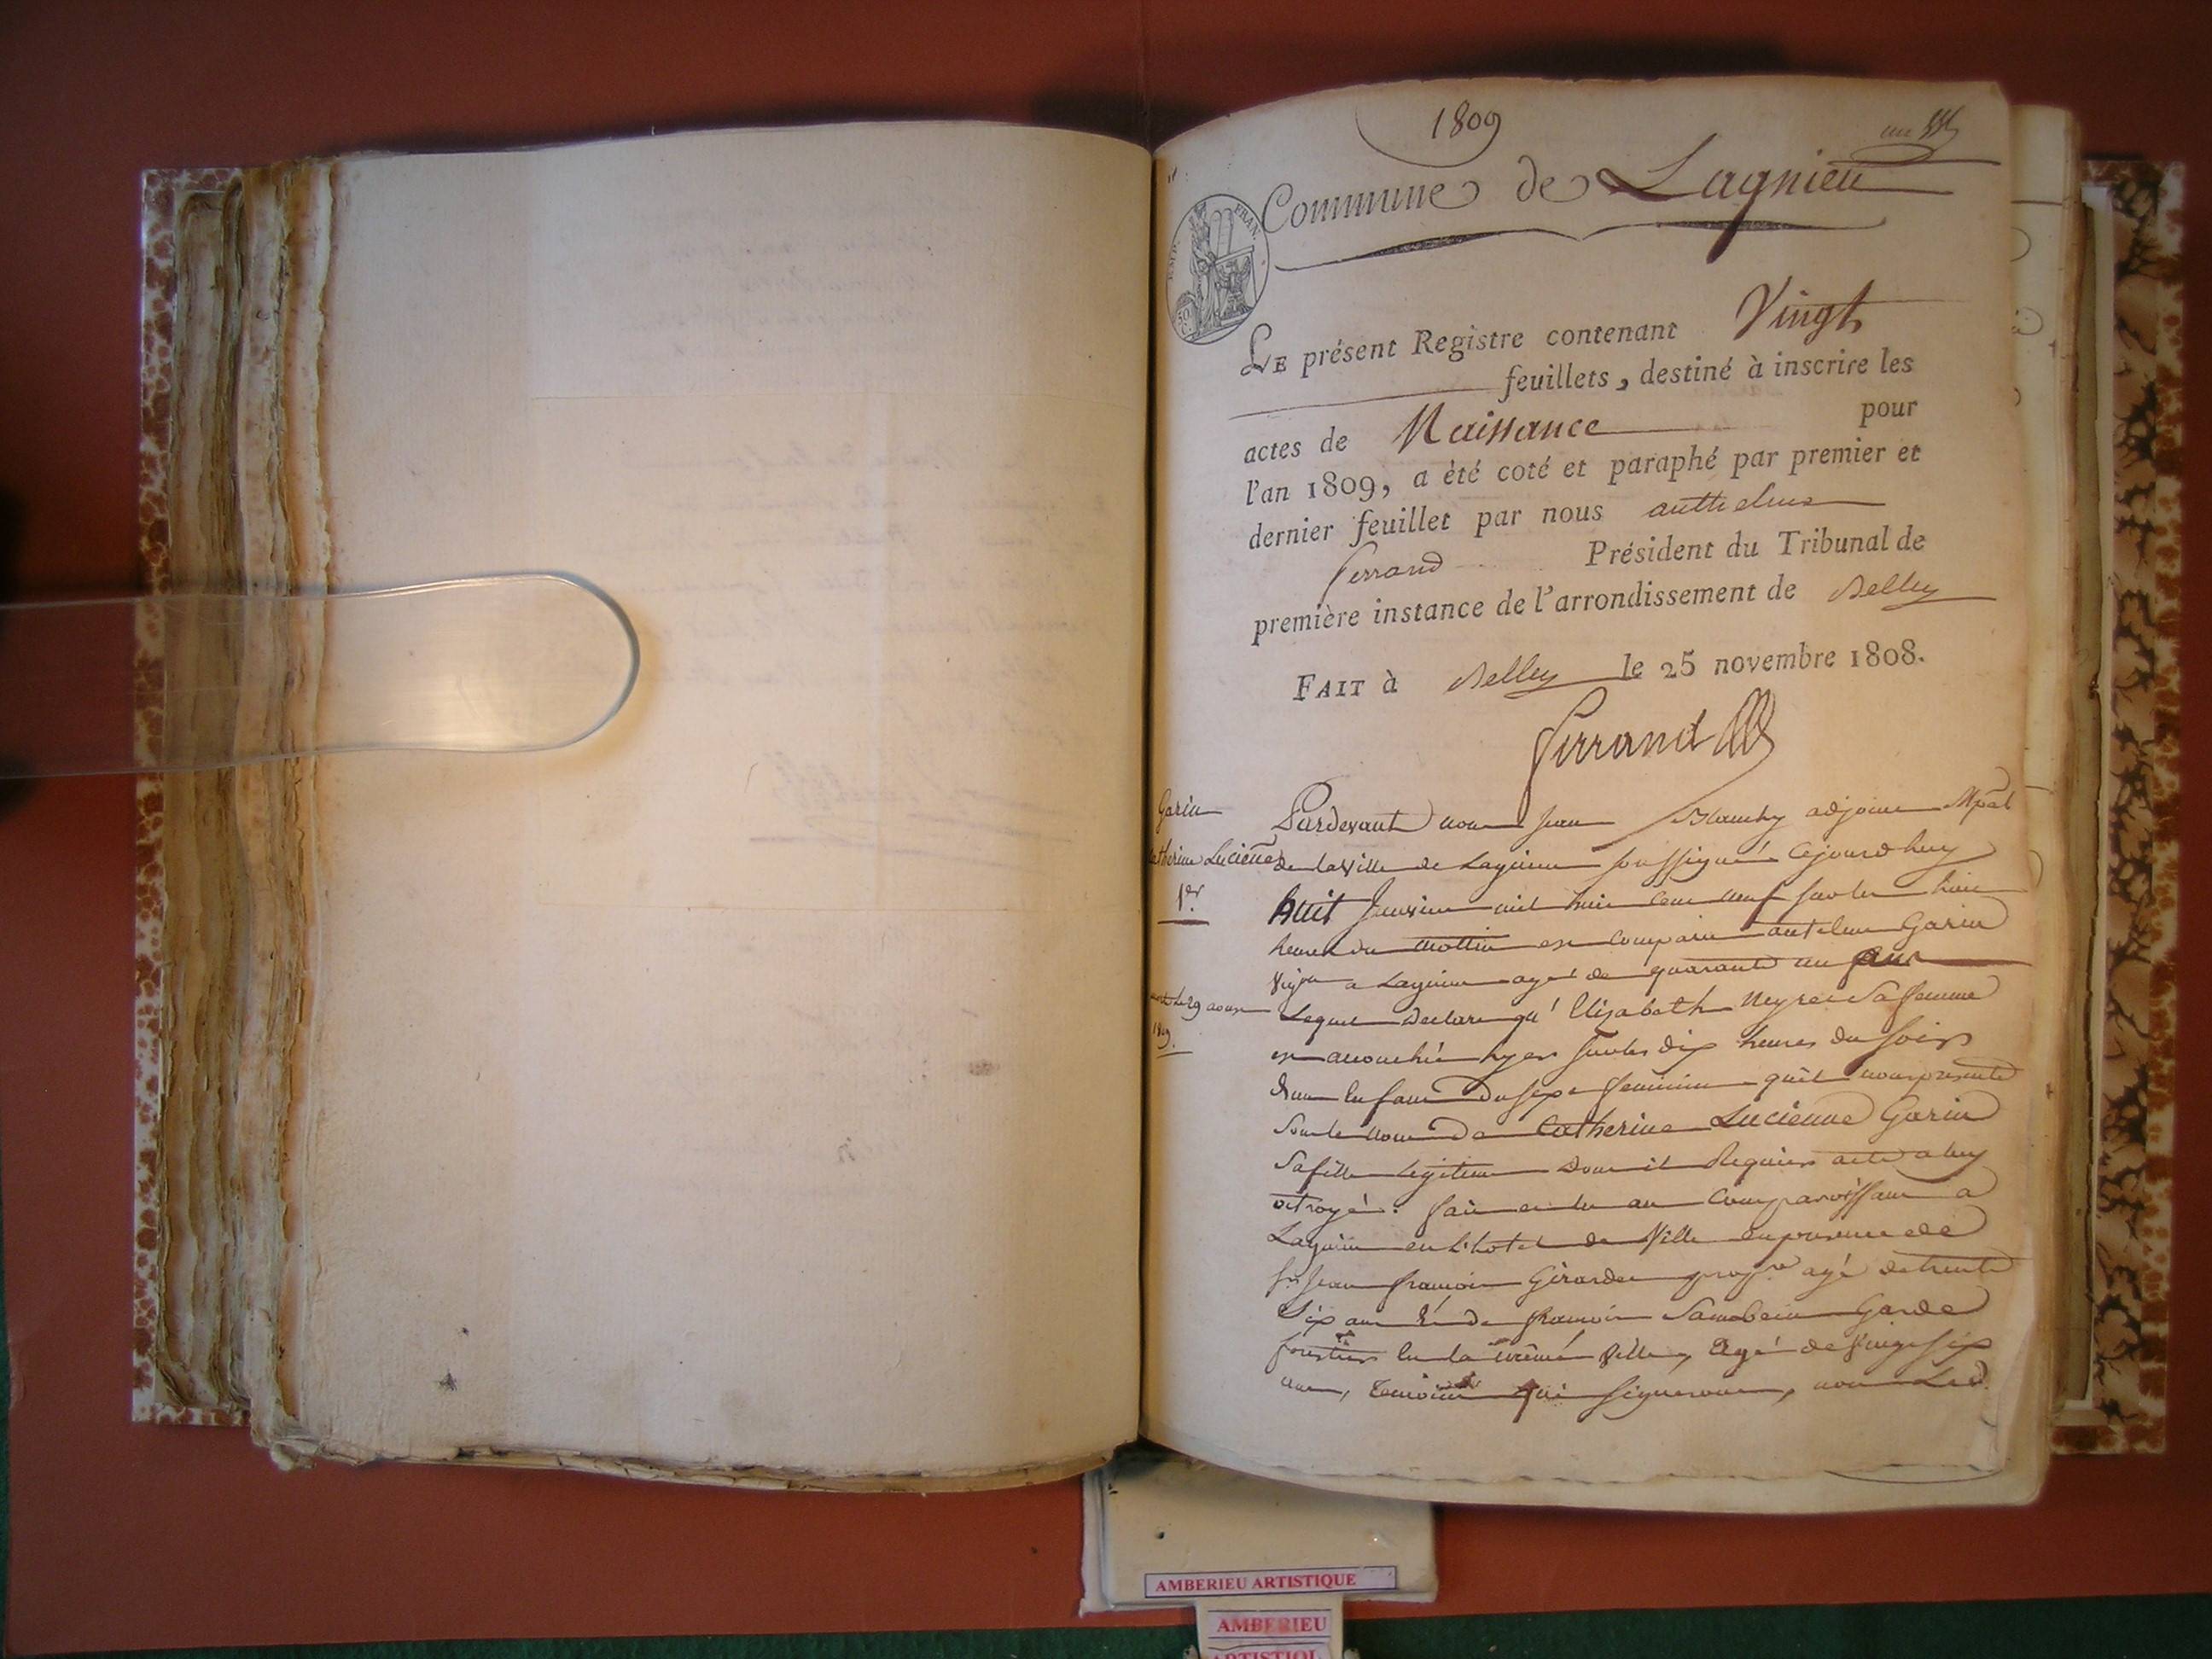 1809
Commune de Lagnieu
EMP. FRAN.
LE présent Registre contenant Vingt
feuillets, destiné à inscrire les
actes de Naissance pour
l'an 1809, a èté coté et paraphé par premier et
dernier feuillet par nous anthelme
ferrand Président du Tribunal de
première instance de l'arrondissement de Belley
FAIT à Belley le 25 novembre 1808.
ferrand
Garin
Catherine Lucienne
1er
morte le 29 aoust
1809.
Pardevant nous jean Blanchy adjoint Mpal
de la Ville de Lagnieu soussigné Cejourdhuy
huit Janvier mil huit cent neuf sur les huit
heures du mattin est comparu antelme Garin
Vigron a Lagnieu agé de quarante un ans
Lequel declare qu'Elisabeth Neyret Sa femme
est accouchée hyer sur les dix heures du soir
dun Enfant du sexe feminin quil nous presente
Sous le nom De Catherine Lucienne Garin
Sa fille legitime dont il Requiert acte a luy
octroyé. fait et lu au Comparoissant a
Lagnieu en L'hotel de Ville en presence de
sr jean francois Girardet propre agé de trente
Six ans & de francois Garde
forestier En la même Ville, Agé de Vingt six
ans, temoins qui signeront, non Led.
AMBERIEU ARTISTIQUE
AMBERIEU